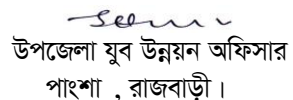 উপজেলা যুব উন্নয়ন অফিসার
পাংশা , রাজবাড়ী।